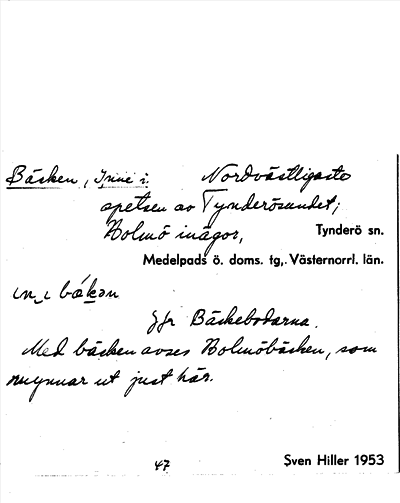 Bäsken, Inne i. Nordvästligaste
spetsen av Tynderösundet;
Holmö inägor, Tynderö sn.
Medelpads ö. doms. tg,. Västernorrl. län.
in i
Jfr Bäskebodarna.
Med bäsken avses Holmöbäsken, som
mynnar ut just här.
47 Sven Hiller 1953